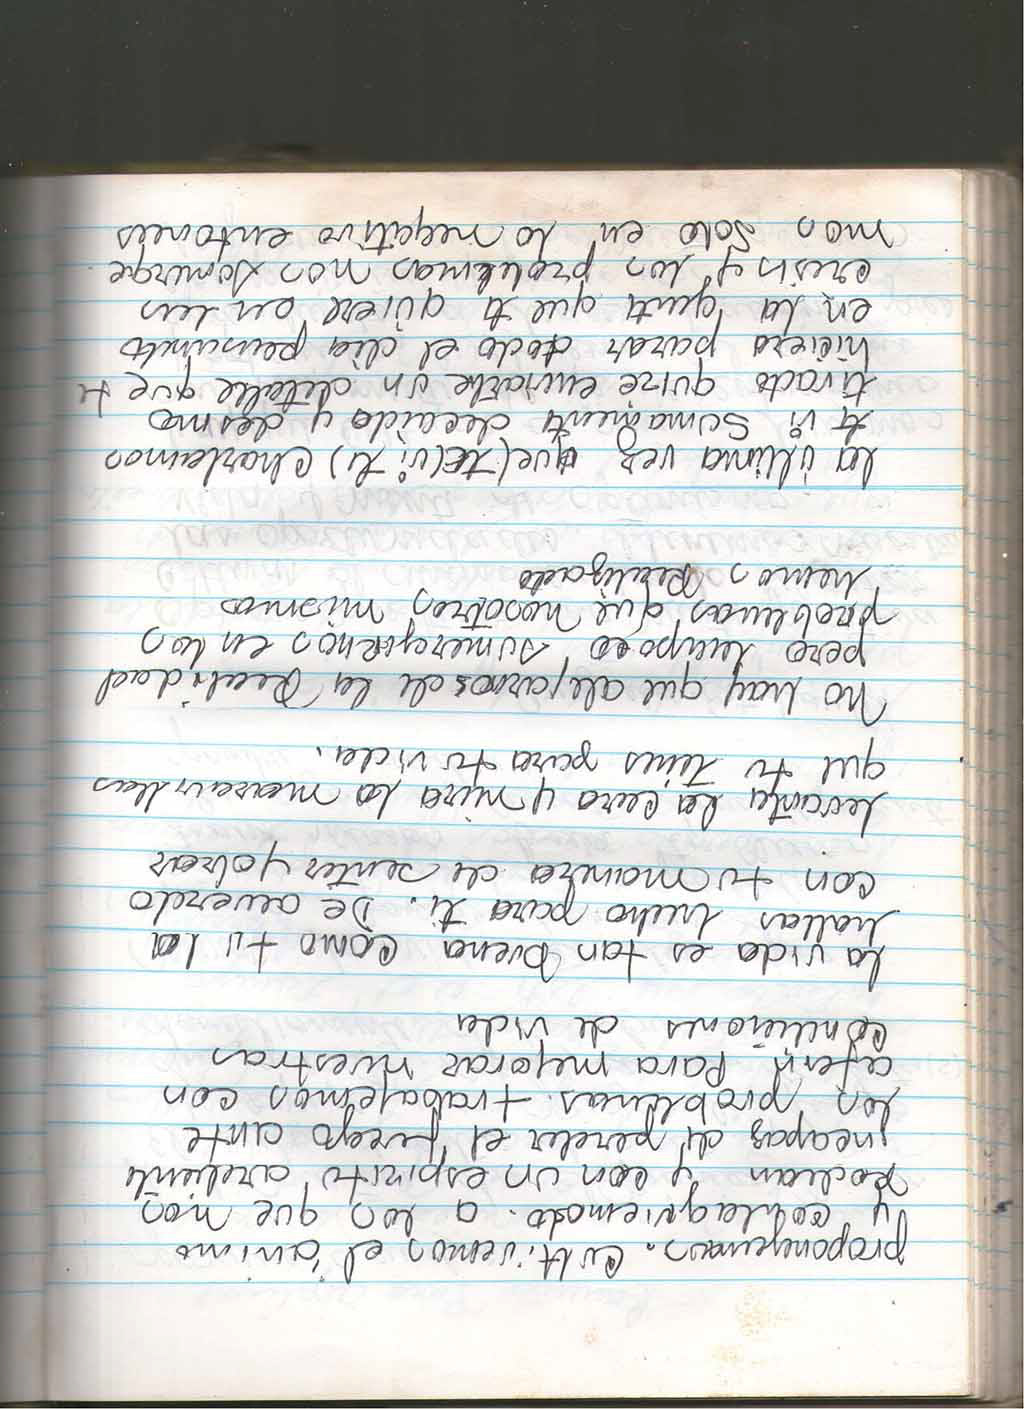 propongamos. Cultivemos el ánimo
y contagiemoslo a los que nos
rodean y con un espiritu ardiente
incapaz di perder el fuego ante
los problemas. trabajemos con
afern para mejorar nuestras
condiciones de vida
La vida es tan buena como tu la
hallas hecho para ti. De acuerdo
con tu manera de sentir y obrar
Levanta la cara y mira lo maravillas
que tu tenis para tu vida.
No hay que alejarnos de la Realidad
pero tampoco sumergirnos en los
problemas que nosotros mismos
hemos Realizado
La última vez que (te vi ti) Charlamos
ti vi Sumamente decaido y desmo
tivado quize enviarte un detalle que te
hiciera pasar todo el dia pensando
en la gente que ti quiere an las
crisis y los problemas nos sumerge
mos solo en lo negativo entonces